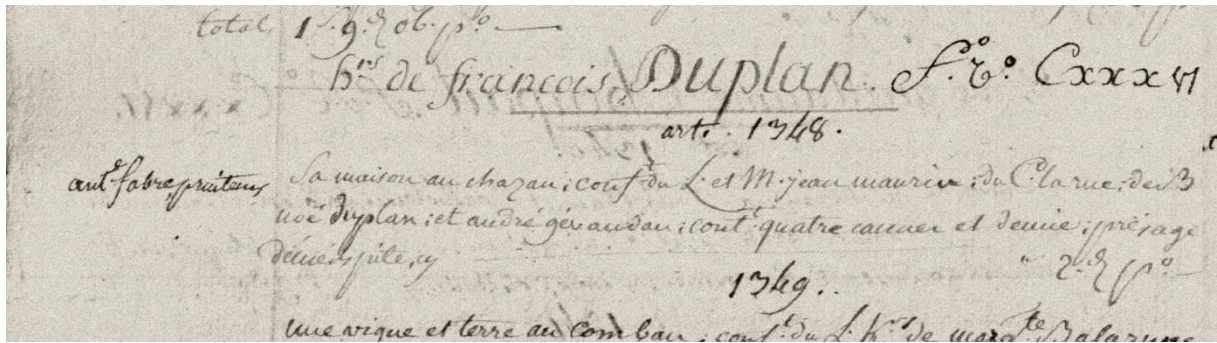 total 1 9 ob. po
hrs de françois Duplan. fo. vo. Cxxxvi
arte. 1348.
ante fabre printems
Sa maison au chazau; confte du L. et M. jean maurin; du C. la rue; de B
noë duplan; et andré gévaudan; conte quatre cannes et demie; présage
demie pite, cy 2 po
1349.
une vigne et terre au combau; confte du L. hrs de margte Balarune